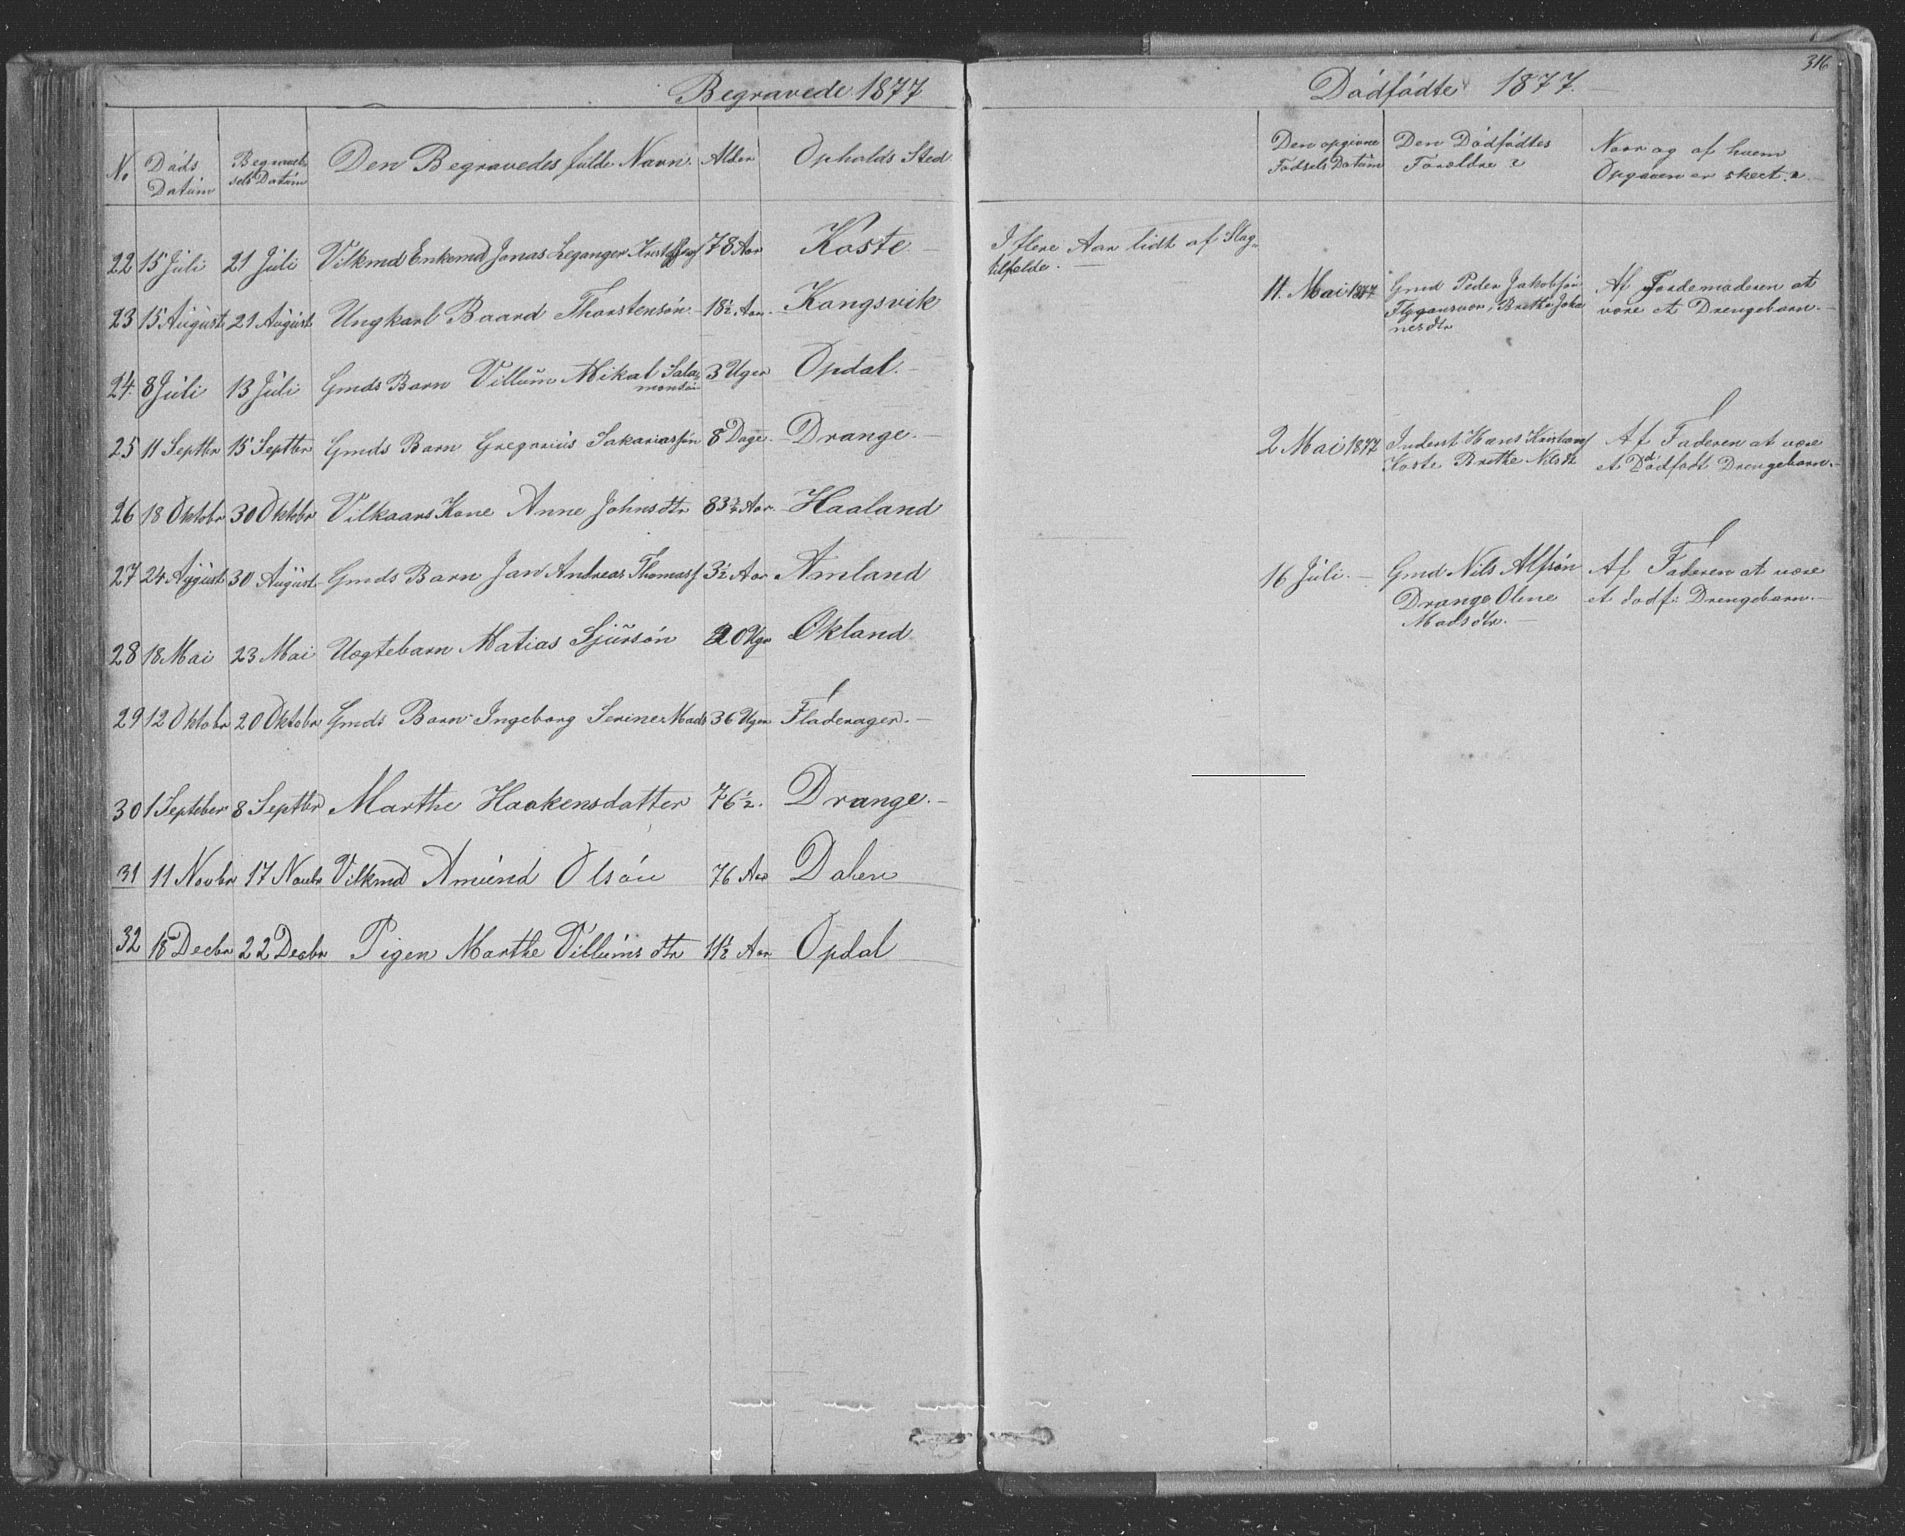 Begravede 1877
No
Döds Datum
Begravelsels Datum
Den Begravedes fulde Navn.
Alder
Opholds Sted
22 15 Juli 21 Juli Vilkmd Enkemd Jonas Leganger 78 Aar Koste
23 15 August 21 August Ungkarl Baard Thorstensön 18½ Aar. Kongsvik
24. 8 Juli 13 Juli Gmds Barn Villum Mikal Salamonsön 3 Uger Opdal.
25 11 Septbr 15 Septbr Gmds Barn Gregorius Sakariassön 8 Dage. Drange.
26 18 Oktobr 30 Oktbr Vilkaars Kone Anne Johnsdtr 83½ Aar. Haaland
27 24 August 30 August Gmds Barn Jan Andreas Thomass. 3½ Aar Amland
28 18 Mai 23 Mai Uægtebarn Matias Sjursön 20 Ugr Økland
29 12 Oktobr 20 Oktobr Gmds Barn Ingeborg Serine Mads 36 Uger Fladerager.
30 1 September 8 Septbr Marthe Haakensdatter 76½. Drange.
31 11 Novbr 17 Novbr Vilkmd Amund Olsön 76 Aar Dalen
32 18 Decbr 22 Decbr Pigen Marthe Villumsdtr 11½ Aar Opdal
316
Dödfödte 1877.
Den opgivne Födsels Datum
Den Dödfödtes Forældre?
Naar og af hvem Opgaven er skeet?
I flere Aar lidt af Slag-
tilfælde.
11. Mai 1877 Gmd Peder Jakobsön Af Jordemoderen at
Brethe Joha være et Drengebarn.
nesdtr
2 Mai 1877 Inderst Hans Af Faderen at være
Koste Brethe Nilsdtr et Dödfödt Drengebarn.
16 Juli. Gmd Nils Alfsön Af Faderen at være
Drange Oline et dödf: Drengebarn.
Madsdtr.